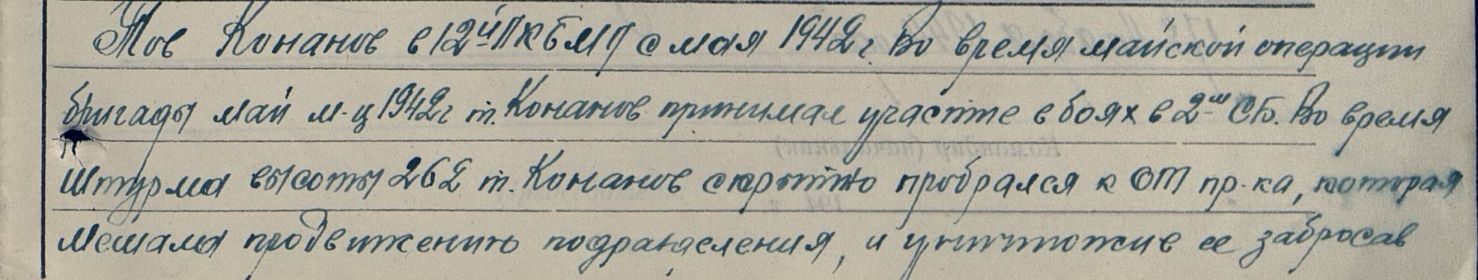 Тов Конанов в 12й ПКБМП с мая 1942 г. Во время майской операции
бригады май м-ц 1942 г т. Конанов принимал участие в боях в 2ш СБ. Во время
штурма высоты 262 т. Конанов скрытно пробрался к ОТ пр-ка, которая
мешала продвижению подразделения, и уничтожив ее забросав